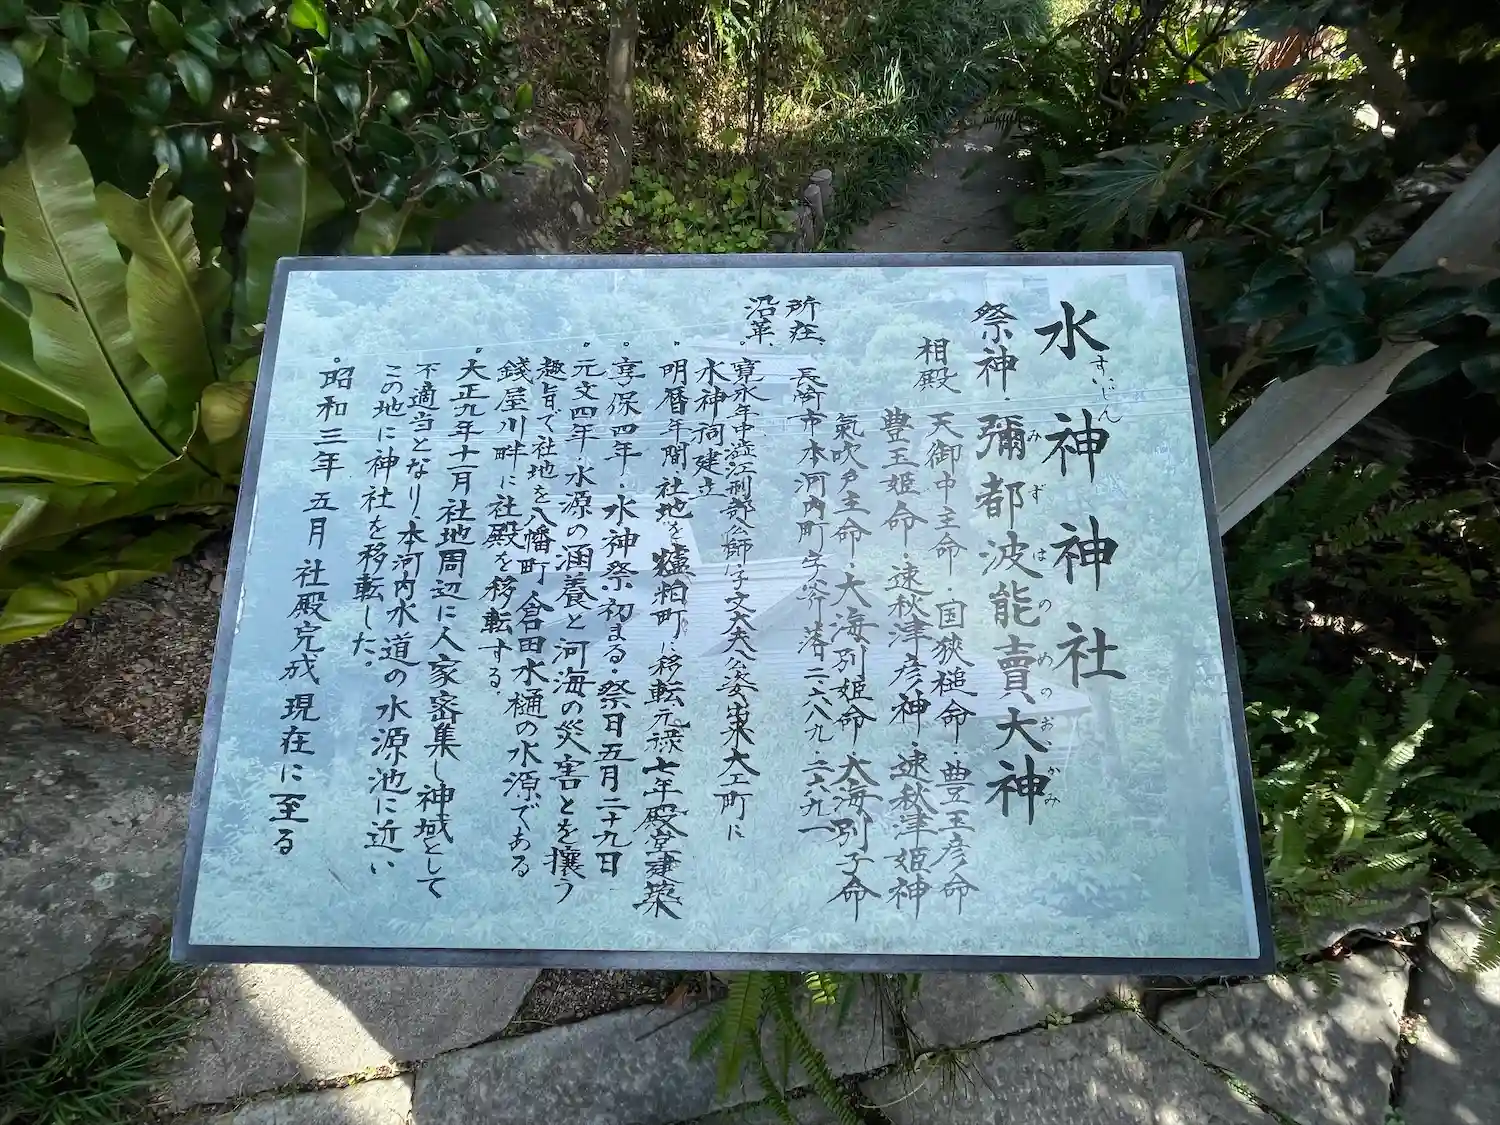 水神神社
すいじん
祭神・彌都波能賣大神
みずはのめのおおかみ
相殿 天御中主命・国狭槌命・豊玉彦命
豊玉姫命・速秋津彦神・速秋津姫神
氣吹戸主命・大海別姫命・大海別子命
所在、長崎市本河内町字
沿革、。寛永年中澁江刑部公師字文太夫公姿
大工町に
水神祠建立
。明暦年間社地を 粕町に移転元禄七年殿堂建築
。享保四年・水神祭初まる祭日五月二十九日
。元文四年 水源の涵養と河海の災害とを攘う
趣旨で社地を八幡町 倉田水樋の水源である
錢屋川畔に社殿を移転する。
。大正九年十一月 社地周辺に人家密集し神域として
不適当となり 本河内水道の水源池に近い
この地に神社を移転した。
。昭和三年 五月 社殿完成 現在に至る